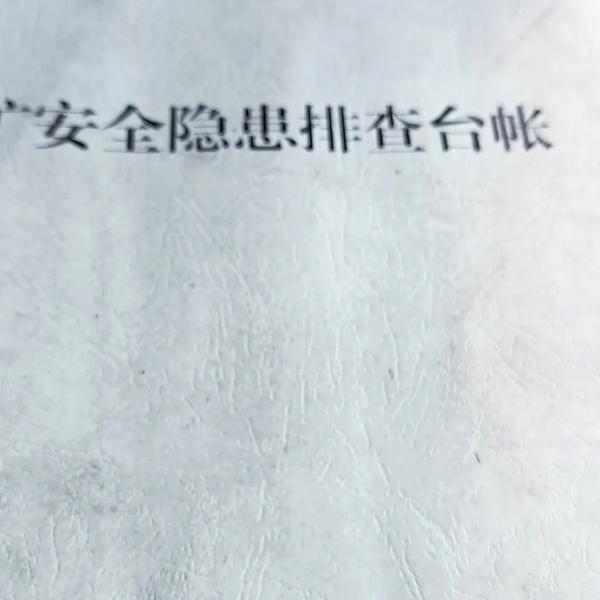 安全隐患排查台帐